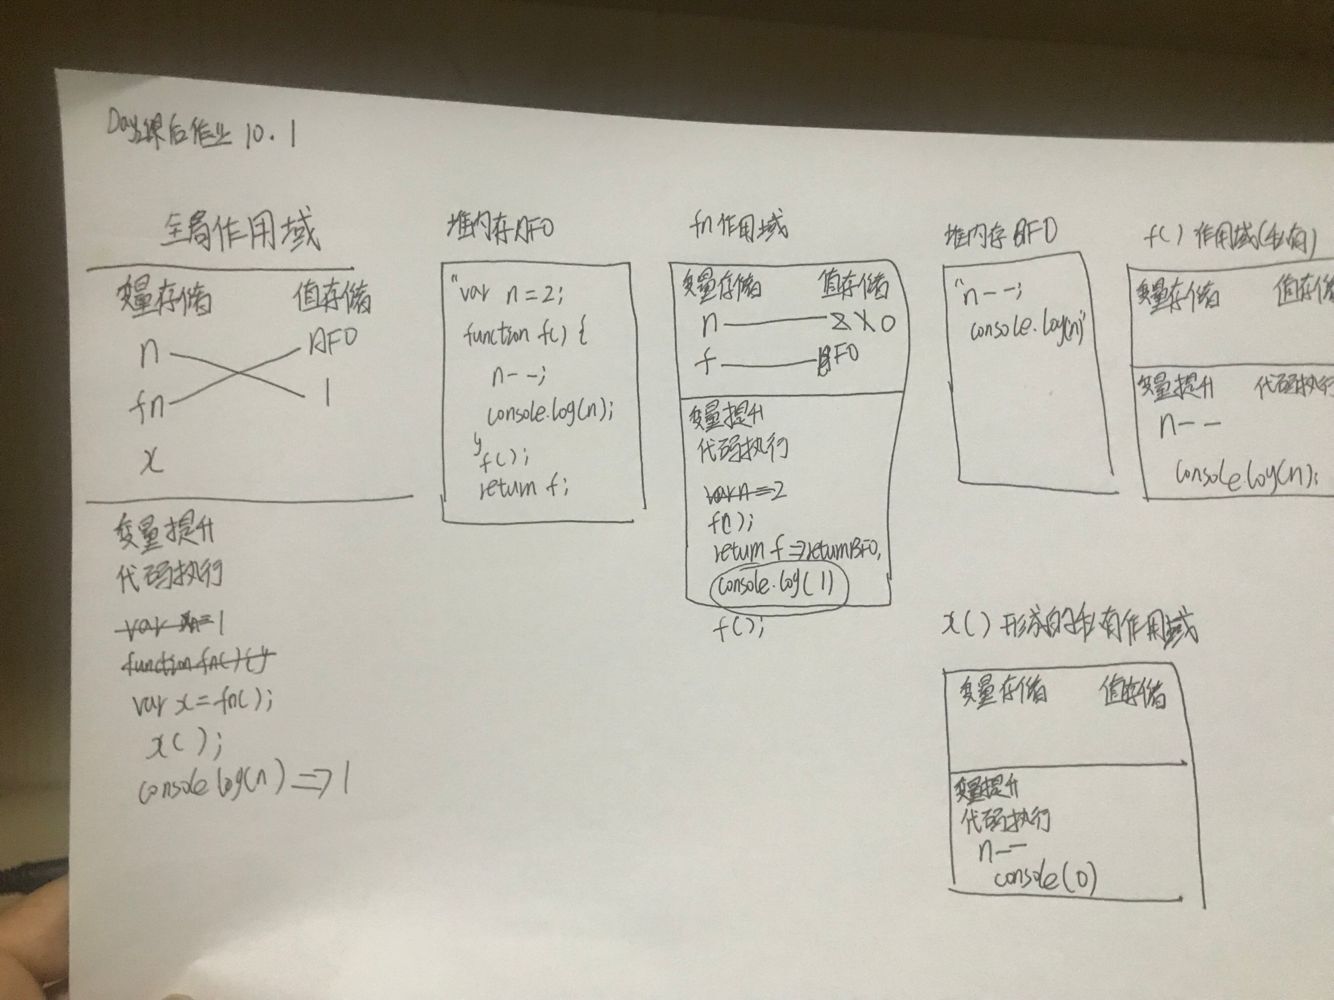 课后作业 10.1
全局作用域
变量存储 值存储
n AF0
fn 1
x
变量提升
代码执行
var n=1
function fn(){}
var x=fn();
x();
console log(n) => 1
堆内存AF0
"var n=2;
function f() {
n--;
console.log(n);
}
f();
return f;
fn作用域
变量存储 值存储
n 2 1 0
f BF0
变量提升
代码执行
var n=2
f();
return f => return BF0,
console.log(1)
f();
堆内存 BF0
"n--;
console.log(n)"
f() 作用域(私有)
变量存储
变量提升 代码执行
n--
console.log(n);
x() 形成的私有作用域
变量存储 值存储
变量提升
代码执行
n--
console(0)